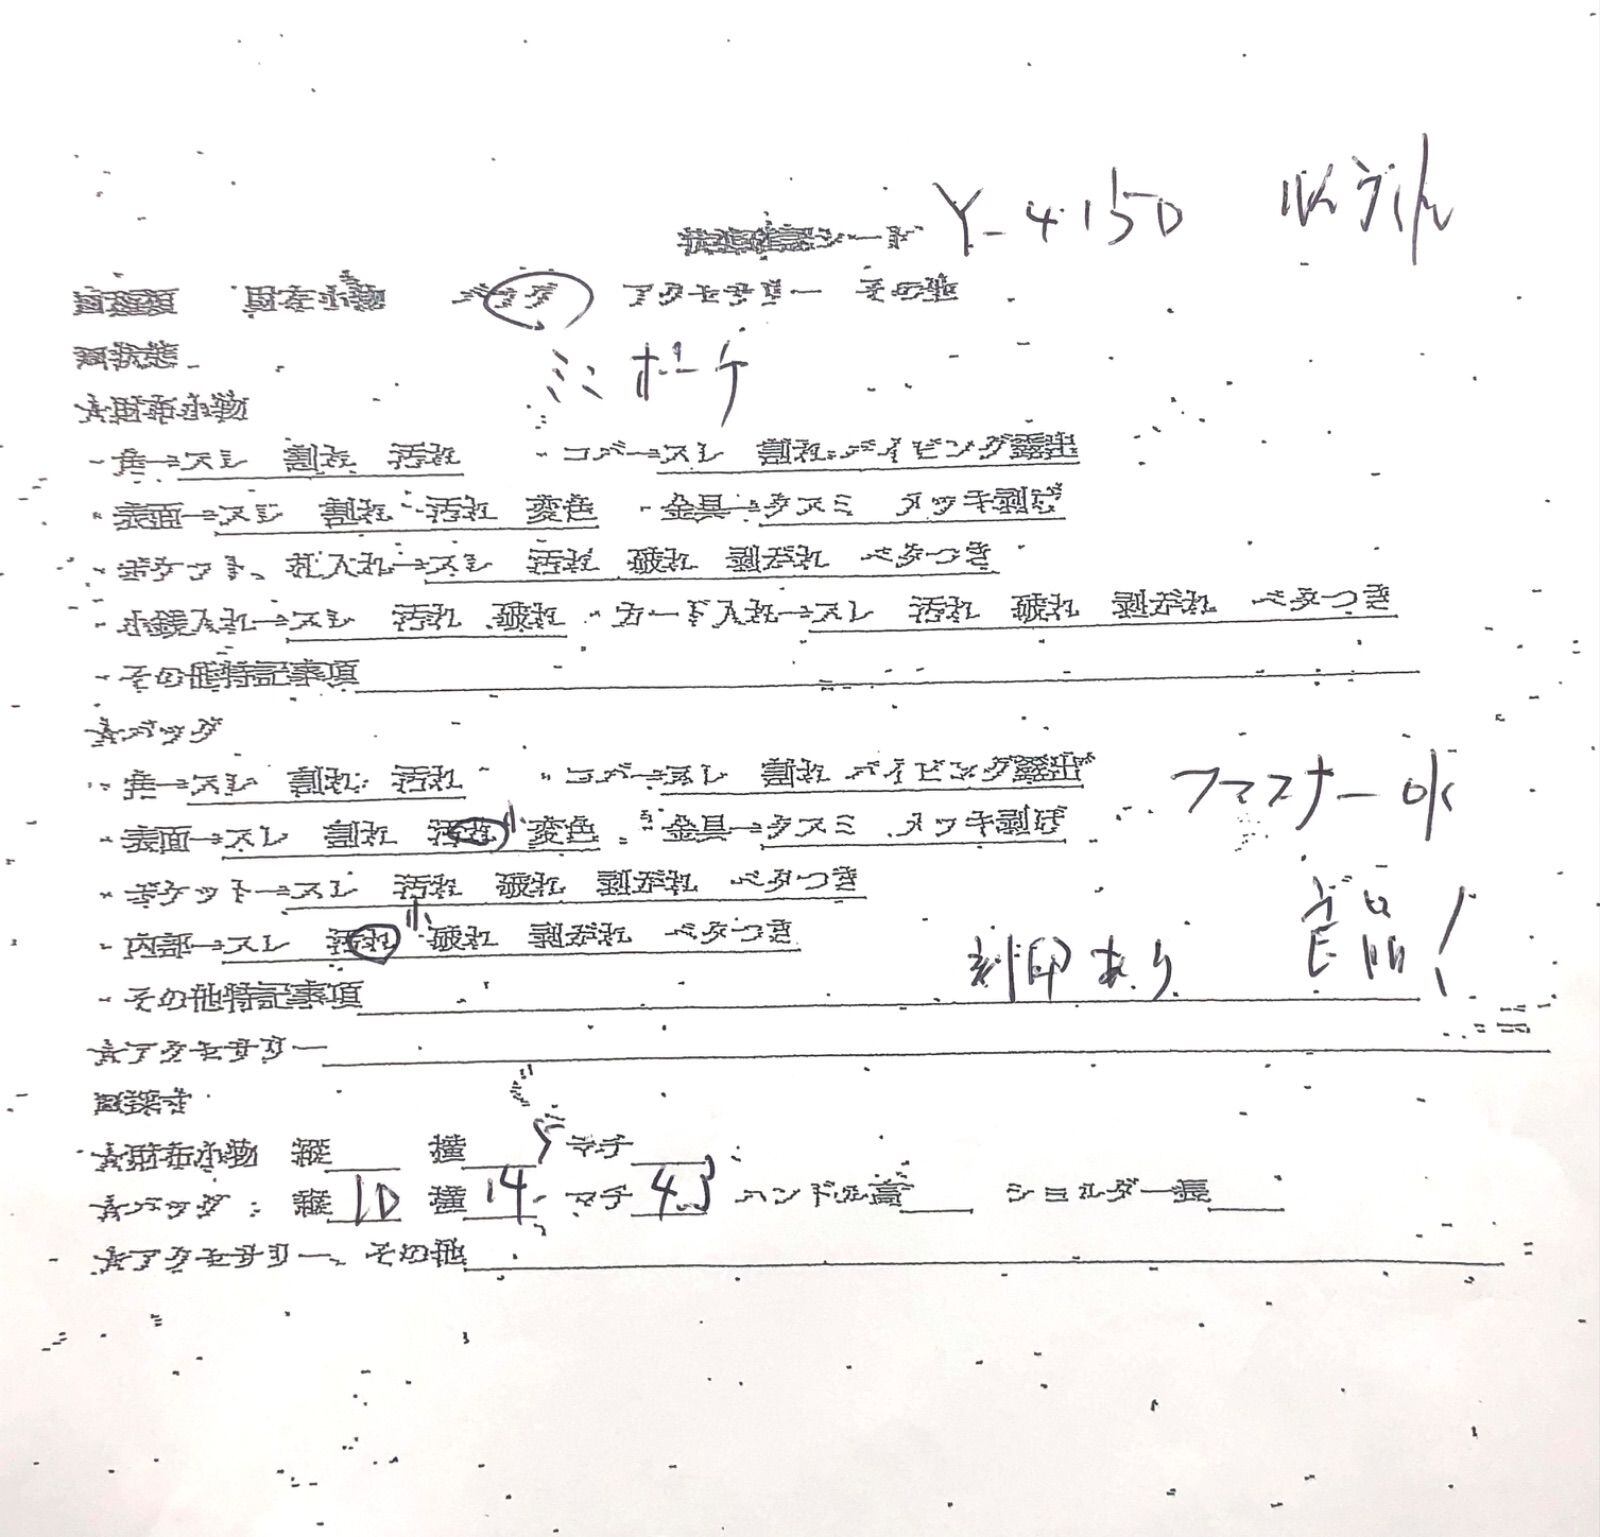 状態確認シート Y-4150
■種類 財布小物 バッグ アクセサリー その他
■状態 ミニポーチ
★財布小物
・角→スレ 割れ 汚れ ・コバ→スレ 割れ パイピング露出
・表面→スレ 割れ 汚れ 変色 ・金具→クスミ メッキ剥げ
・ポケット、札入れ→スレ 汚れ 破れ 剥がれ ベタつき
・小銭入れ→スレ 汚れ 破れ ・カード入れ→スレ 汚れ 破れ 剥がれ ベタつき
・その他特記事項
★バッグ
・角→スレ 割れ 汚れ ・コバ→スレ 割れ パイピング露出 ファスナーOK
・表面→スレ 割れ 汚れ 小 変色 ・金具→クスミ メッキ剥げ
・ポケット→スレ 汚れ 破れ 剥がれ ベタつき
・内部→スレ 汚れ 小 破れ 剥がれ ベタつき 刻印あり 良品!
・その他特記事項
★アクセサリー
■採寸
★財布小物 縦 横 マチ
★バッグ 縦 10 横 14 マチ 4.5 ハンドル高 ショルダー長
★アクセサリー、その他